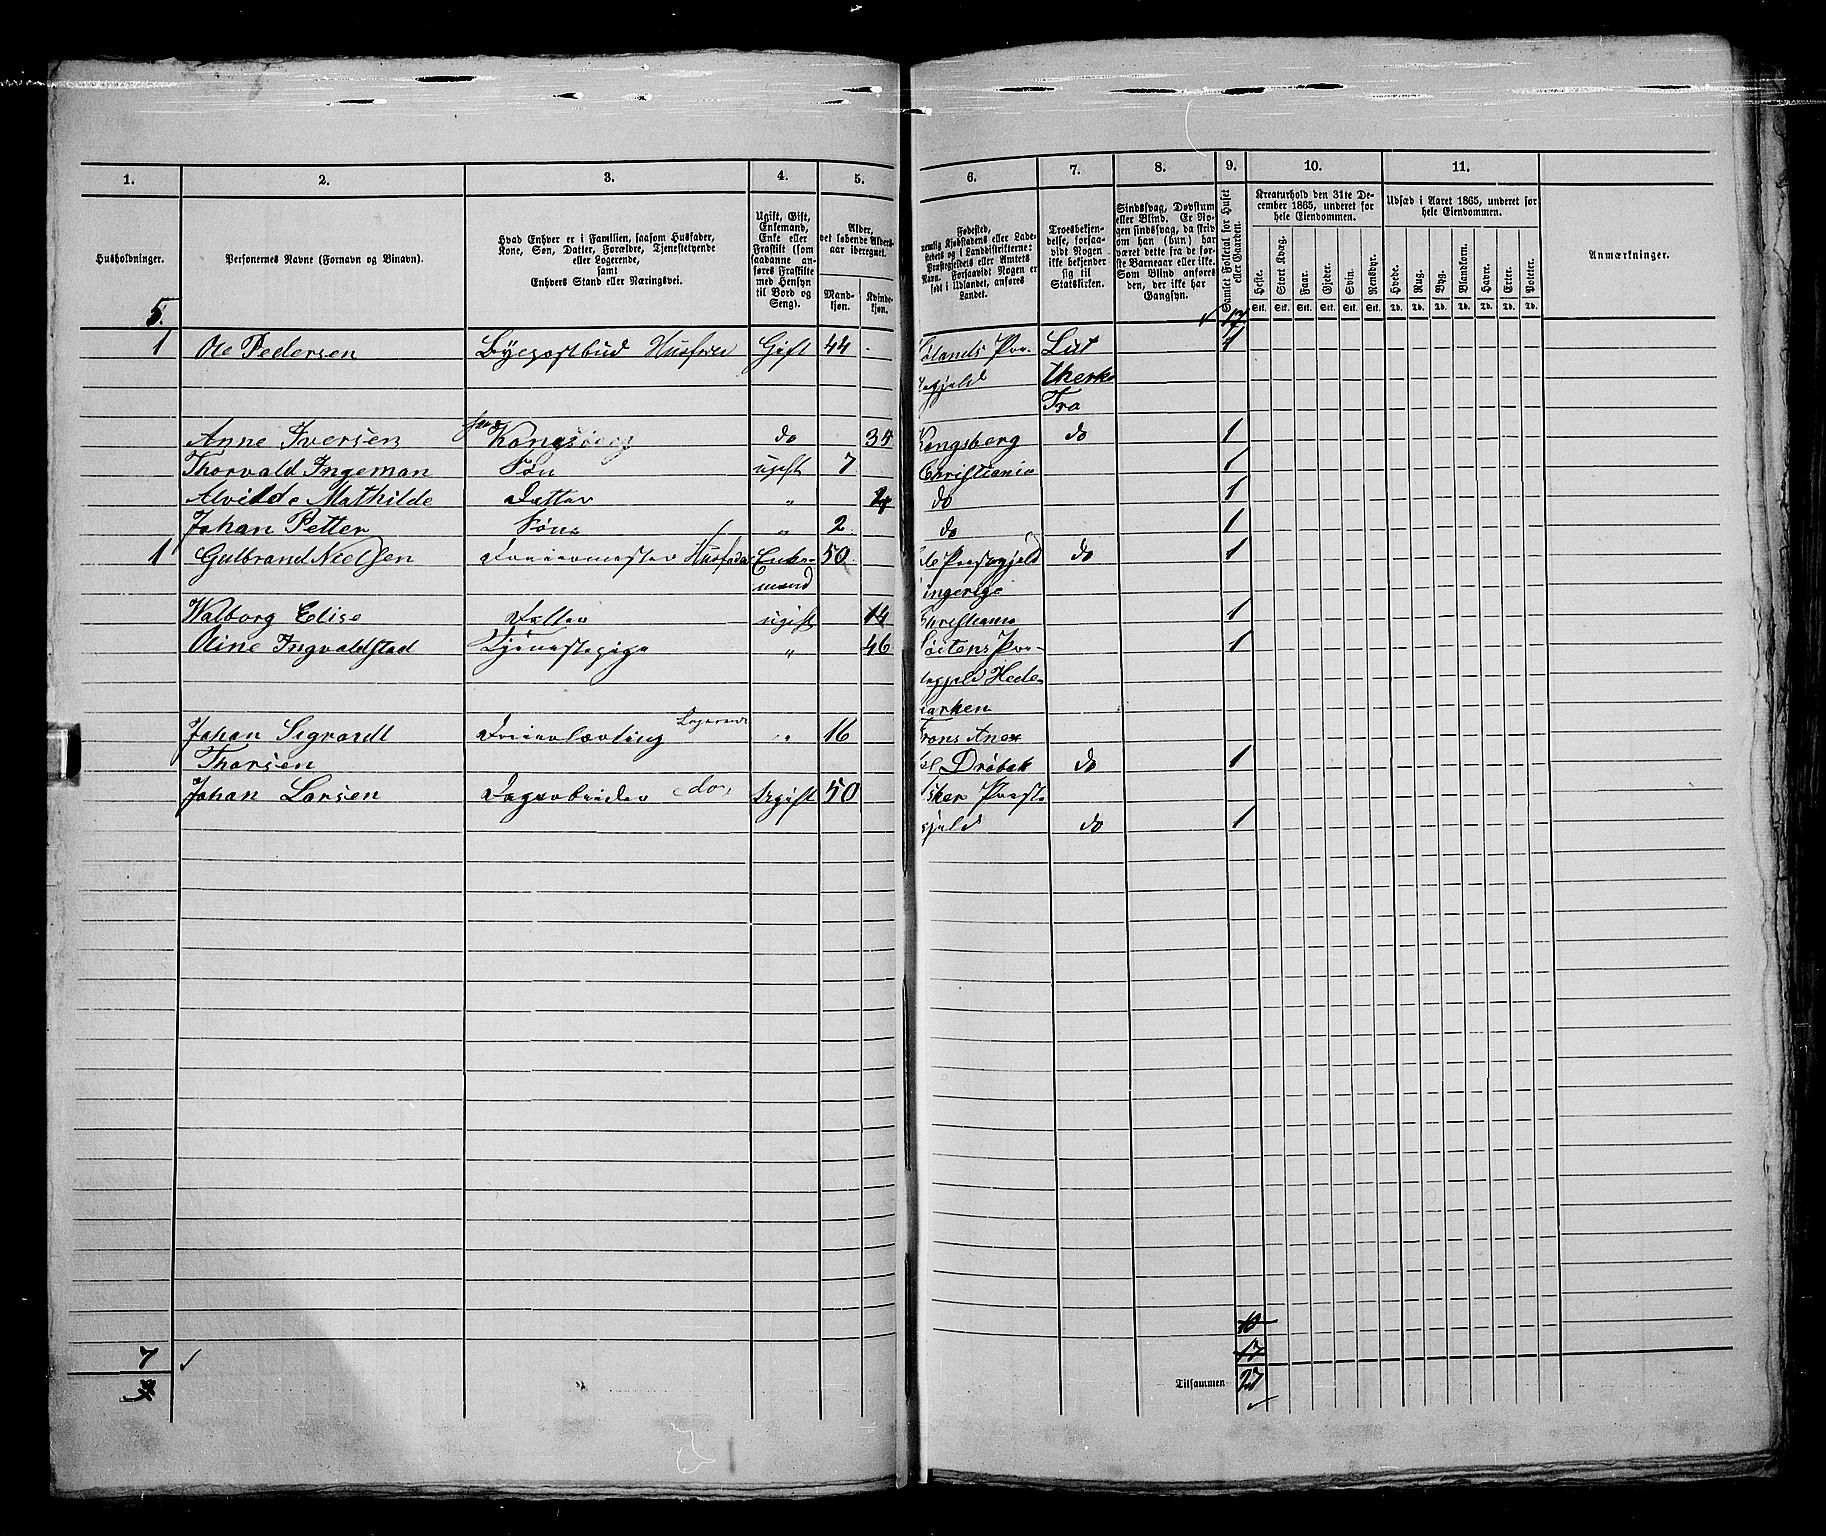 1. 2. 3. 4. 5. 6. 7. 8. 9. 10. 11.
Husholdninger.
Personernes Navne (Fornavn og Binavn).
Hvad Enhver er i Familien, saasom Husfader,
Kone, Søn, Datter, Forældre, Tjenestetyende
eller Logerende,
samt
Enhvers Stand eller Næringsvei.
Ugift, Gift,
Enkemand,
Enke eller
Fraskilt (som
saadanne an-
føres Fraskilte
med Hensyn
til Bord og
Seng).
Alder,
det løbende Alders-
aar iberegnet.
Mand-
kjøn.
Kvinde-
kjøn.
Fødested,
nemlig Kjøbstadens eller Lade-
stedets og i Landdistrikterne:
Præstegjeldets eller Amtets
Navn. Forsaavidt Nogen er
født i Udlandet, anføres
Landet.
Troesbekjen-
delse, forsaa-
vidt Nogen
ikke bekjender
sig til
Statskirken.
Sindssvag, Døvstum
eller Blind. Er No-
gen sindssvag, da skriv
om han (hun) har
været dette fra de før-
ste Barneaar eller ikke.
Som Blind anføres
den, der ikke har
Gangsyn.
Samlet Folketal for Huset
eller Gaarden.
Kreaturhold den 31te De-
cember 1865, underet for
hele Eiendommen.
Heste. Stort Kvæg. Faar. Gjeder. Svin. Rensdyr.
Stk. Stk. Stk. Stk. Stk. Stk.
Udsæd i Aaret 1865, underet for
hele Eiendommen.
Hvede. Rug. Byg. Blandkorn. Havre. Erter. Poteter.
Td. Td. Td. Td. Td. Td. Td.
Anmærkninger.
5. 17
1 Ole Pedersen Byepostbud Husfader Gift 44 Hølands Præ- Lut 1
stegjeld therke
Fra
Anne Iversen Kongsberg do 35 Kongsberg do 1
Thorvald Ingeman Søn ugift 7 Christiania 1
Alvilde Mathilde Datter " 4 do 1
Johan Petter Søn " 2 do 1
1 Gulbrand Nielsen Dreiermester Husfader Enke- 50 Præstegjeld do 1
mand Ringerige
Walborg Elise Datter ugift 14 Christiania 1
Oline Ingvaldstad Tjenestepige " 46 Løitens Præ- 1
stegjeld Hede-
marken
Johan Sigvardt Dreierlærling Logerende " 16 Frons Anex
Thorsen Drøbak do 1
Johan Larsen Dagarbeider do Ugift 50 Asker Præste
gjeld do 1
10
7 17
Tilsammen 27